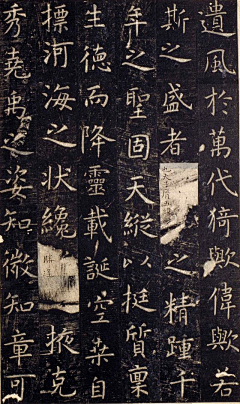 遺風於萬代猗歟偉歟若
斯之盛者之精踵千
年之聖固天縱以挺質稟
生德而降靈載誕空桒自
摽河海之狀纔掖克
秀堯禹之姿知微知章可